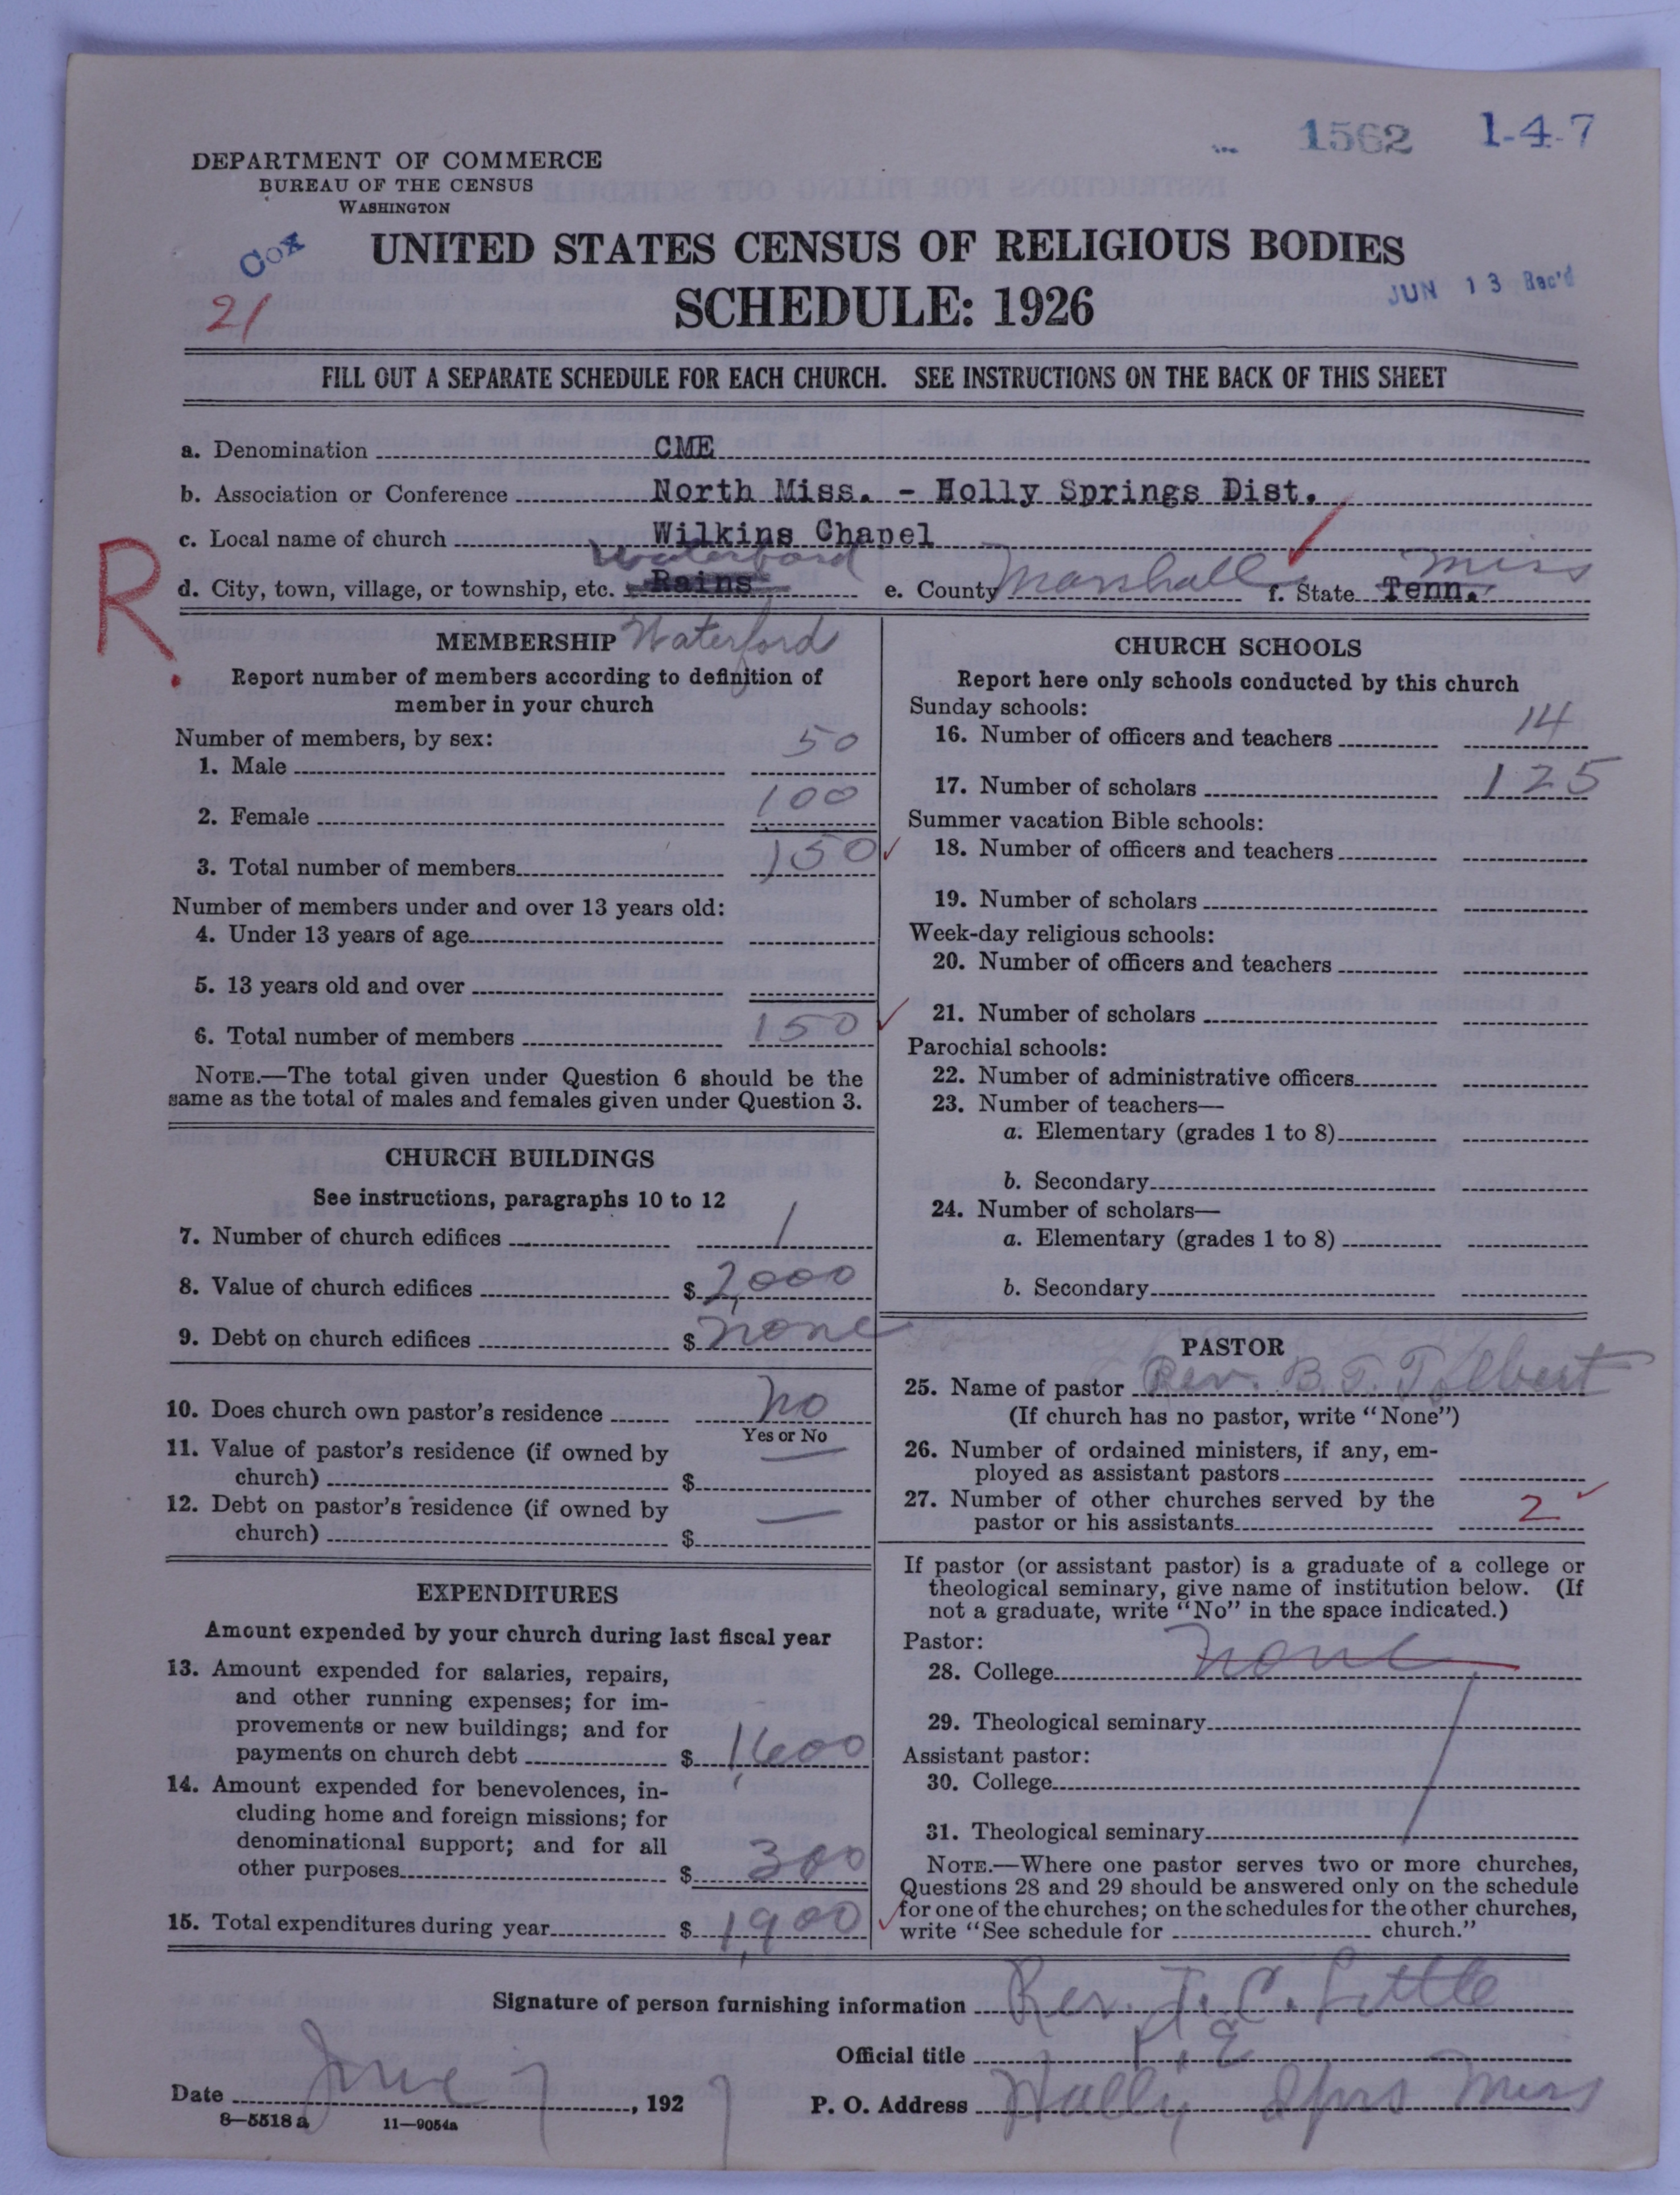 1562 1-4-7
DEPARTMENT OF COMMERCE
BUREAU OF THE CENSUS
WASHINGTON
Cox
21
UNITED STATES CENSUS OF RELIGIOUS BODIES
SCHEDULE: 1926
JUN 13 Rec'd
FILL OUT A SEPARATE SCHEDULE FOR EACH CHURCH. SEE INSTRUCTIONS ON THE BACK OF THIS SHEET
a. Denomination CME
b. Association or Conference North Miss. - Holly Springs Dist.
c. Local name of church Wilkins Chapel
R.
Waterford
d. City, town, village, or township, etc. Rains e. County Marshall f. State Tenn. Miss
MEMBERSHIP Waterford
Report number of members according to definition of
member in your church
Number of members, by sex:
1. Male 50
2. Female 100
3. Total number of members 150
Number of members under and over 13 years old:
4. Under 13 years of age
5. 13 years old and over
6. Total number of members 150
NOTE.—The total given under Question 6 should be the
same as the total of males and females given under Question 3.
CHURCH BUILDINGS
See instructions, paragraphs 10 to 12
7. Number of church edifices 1
8. Value of church edifices $ 2,000
9. Debt on church edifices $ none
10. Does church own pastor's residence no
Yes or No
11. Value of pastor's residence (if owned by
church) $ —
12. Debt on pastor's residence (if owned by
church) $ —
EXPENDITURES
Amount expended by your church during last fiscal year
13. Amount expended for salaries, repairs,
and other running expenses; for im-
provements or new buildings; and for
payments on church debt $ 1,600
14. Amount expended for benevolences, in-
cluding home and foreign missions; for
denominational support; and for all
other purposes $ 300
15. Total expenditures during year $ 1,900
CHURCH SCHOOLS
Report here only schools conducted by this church
Sunday schools:
16. Number of officers and teachers 14
17. Number of scholars 125
Summer vacation Bible schools:
18. Number of officers and teachers
19. Number of scholars
Week-day religious schools:
20. Number of officers and teachers
21. Number of scholars
Parochial schools:
22. Number of administrative officers
23. Number of teachers—
a. Elementary (grades 1 to 8)
b. Secondary
24. Number of scholars—
a. Elementary (grades 1 to 8)
b. Secondary
PASTOR
25. Name of pastor Rev. B. T. Tolbert
(If church has no pastor, write "None")
26. Number of ordained ministers, if any, em-
ployed as assistant pastors
27. Number of other churches served by the
pastor or his assistants 2
If pastor (or assistant pastor) is a graduate of a college or
theological seminary, give name of institution below. (If
not a graduate, write "No" in the space indicated.)
Pastor:
28. College none
29. Theological seminary
Assistant pastor:
30. College
31. Theological seminary
NOTE.—Where one pastor serves two or more churches,
Questions 28 and 29 should be answered only on the schedule
for one of the churches; on the schedules for the other churches,
write "See schedule for church."
Signature of person furnishing information Rev. T. C. Little
Official title P. E
Date June 7, 1927 P. O. Address Holly Sprs Miss
8—5518a 11—9054a